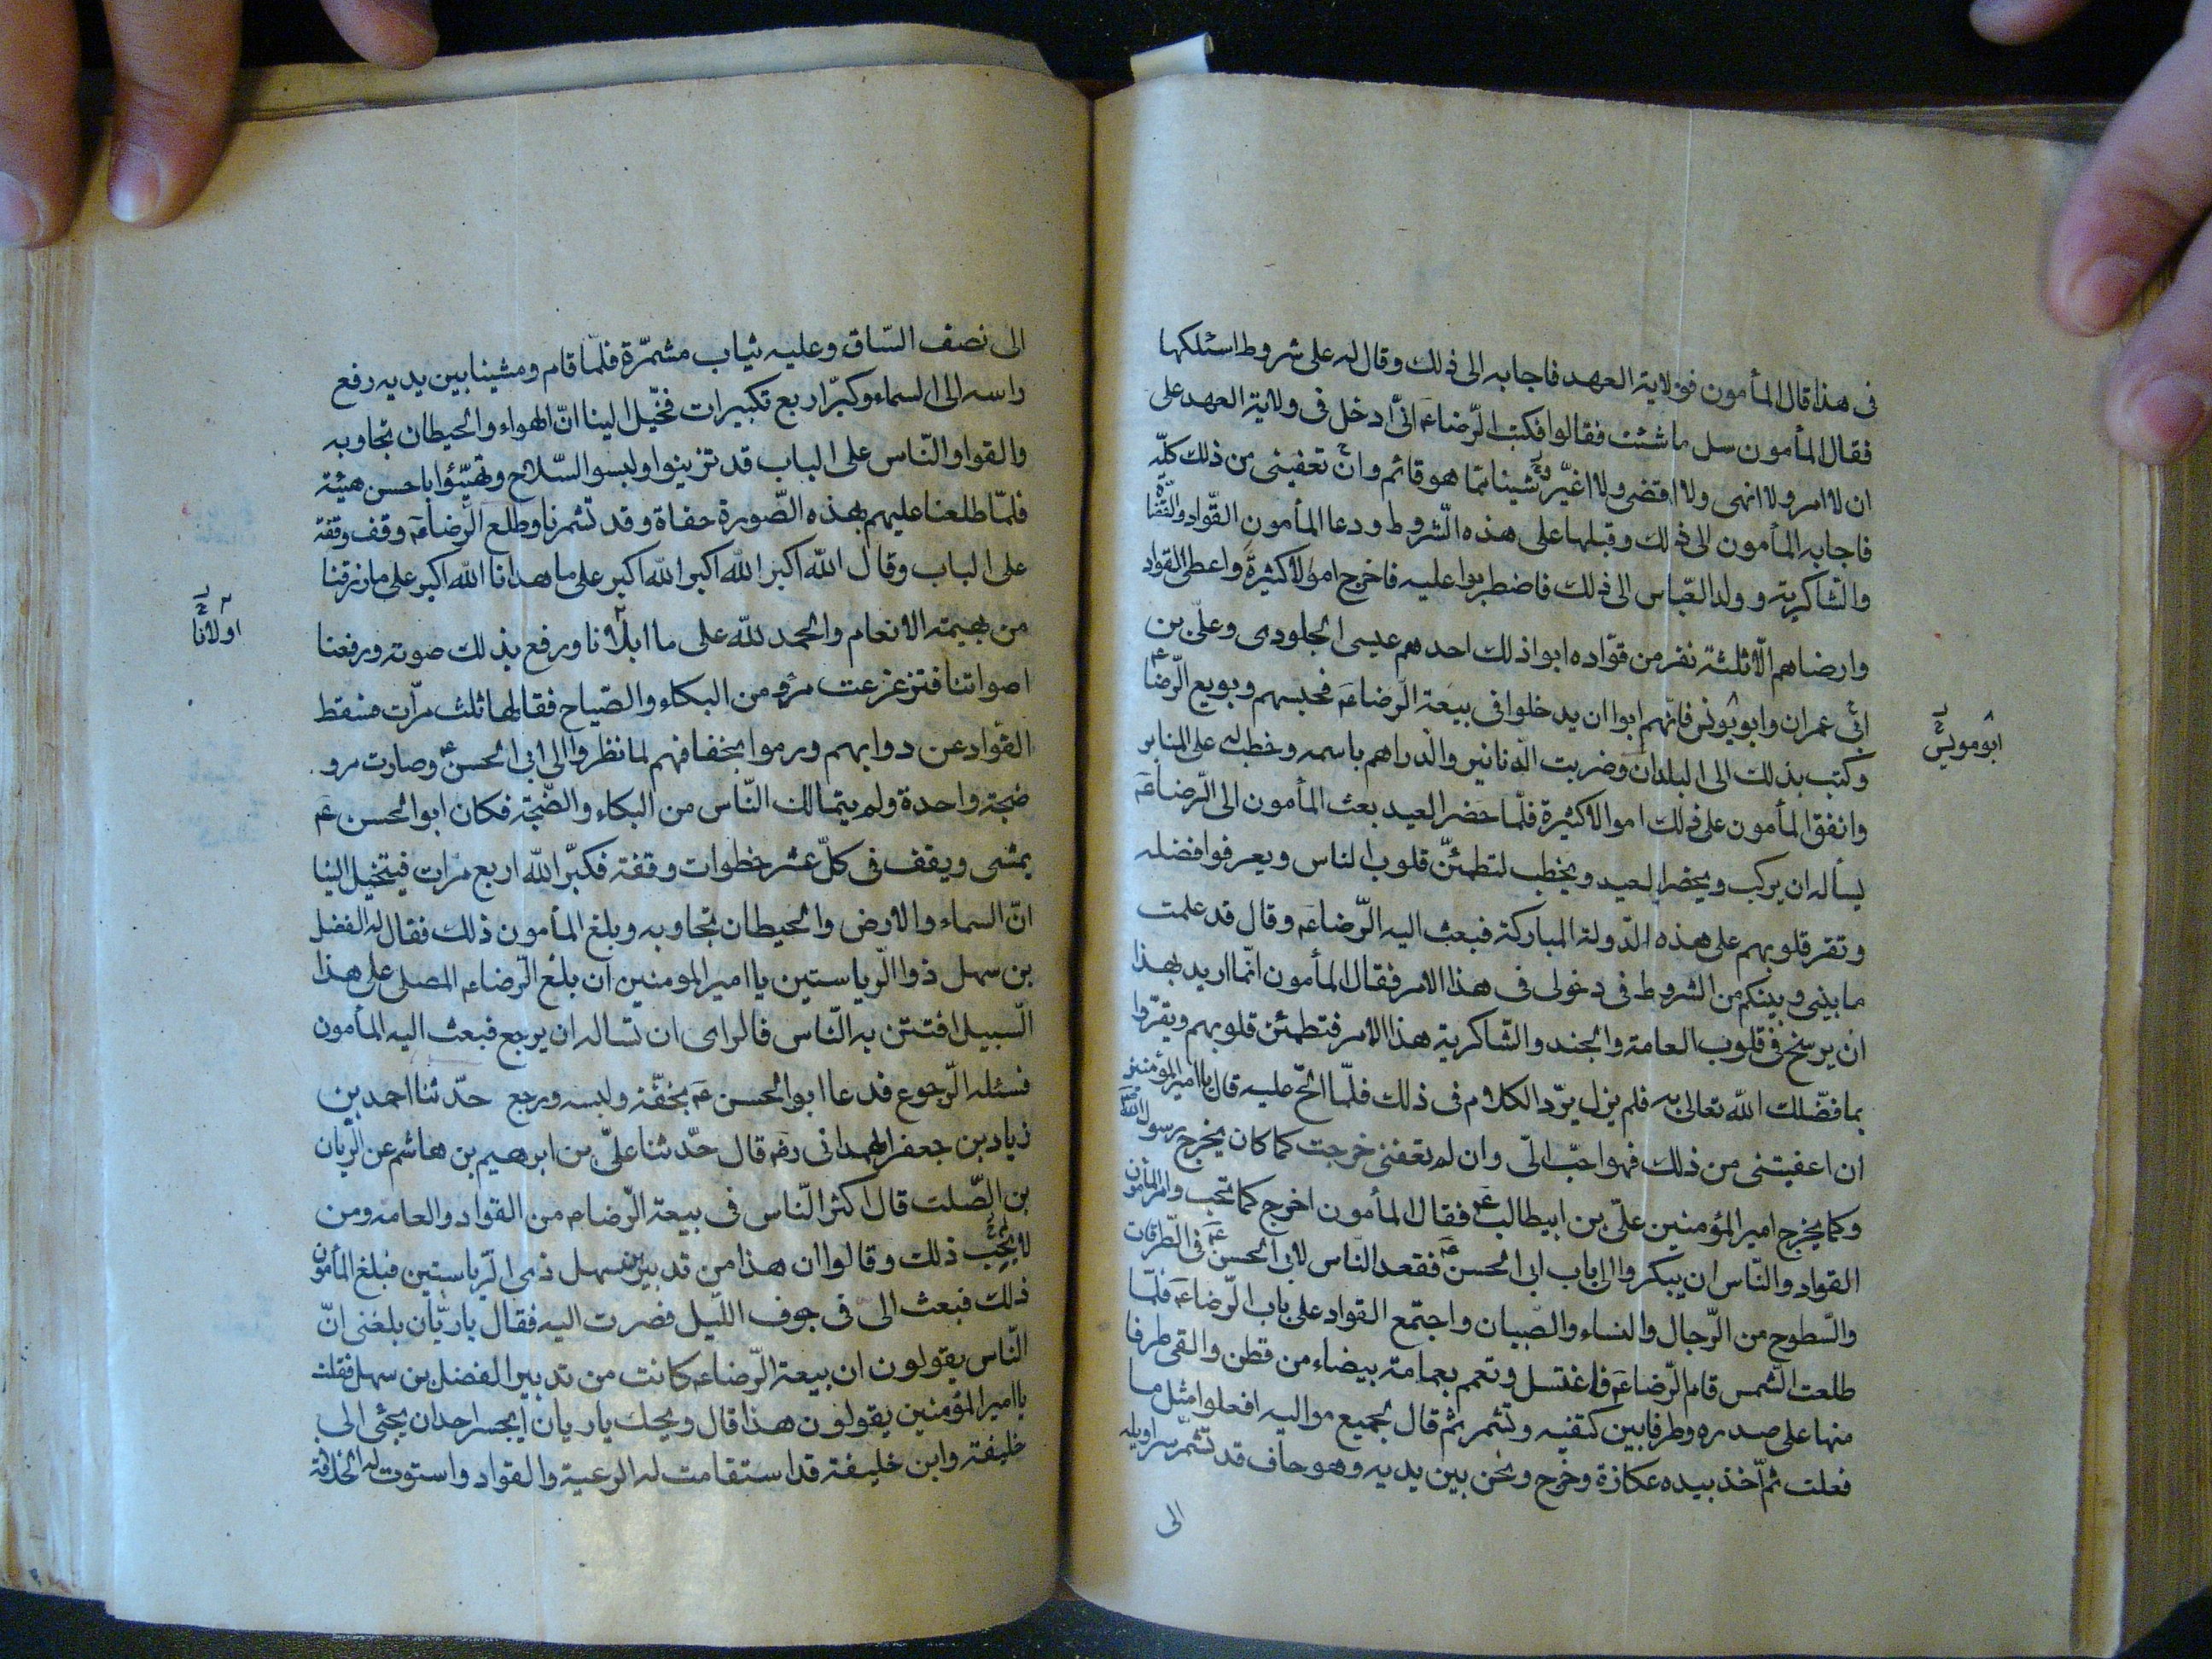 فى هذا قال المأمون فولاية العهد فاجابه الى ذلك وقال له على شروط اسئلكها
فقال المأمون سل ما شئت فقالوا فكتب الرّضا عه انّى ادخل فى ولاية العهد على
ان لا امر ولا انهى ولا اقضى ولا اغيّر شيئا ممّا هو قائم وان تعفينى من ذلك كلّه
فاجابه المأمون الى ذلك وقبلها على هذه الشّروط ودعا المأمون القوّاد والقضاة
والشّاكرية وولد العبّاس الى ذلك فاضطربوا عليه فاخرج اموالا كثيرة واعطى القواد
وارضاهم الّا ثلثة نفر من قوّاده ابوا ذلك احدهم عيسى الجلودى وعلىّ بن
ابى عمران وابو يونس فانّهم ابوا ان يدخلوا فى بيعة الرّضا عه فحبسهم وبويع الرّضا عه
وكتب بذلك الى البلدان وضربت الدّنانير والدّراهم باسمه وخطب له على المنابر
وانفق المأمون على ذلك اموالا كثيرة فلمّا حضر العيد بعث المأمون الى الرّضا عه
يسأله ان يركب ويحضر العيد ويخطب لتطمئنّ قلوب الناس ويعرفوا فضله
وتقر قلوبهم على هذه الدّولة المباركة فبعث اليه الرّضا عه وقال قد علمت
ما بينى وبينكم من الشروط فى دخولى فى هذا الامر فقال المأمون انّما اريد بهذا
ان يرسخ فى قلوب العامة والجند والشّاكرية هذا الامر فتطمئن قلوبهم ويقرّوا
بما فضّلك اللّه تعالى به فلم يزل يردّ الكلام فى ذلك فلمّا الحّ عليه قال يا امير المؤمنين
ان اعفيتنى من ذلك فهو احبّ الىّ وان لم تعفنى خرجت كما كان يخرج رسول اللّه
وكما يخرج امير المؤمنين علىّ بن ابيطالب عه فقال المأمون اخرج كما تحب وامر المأمون
القواد والنّاس ان يبكروا الى باب ابى الحسن عه فقعد النّاس لابى الحسن عه فى الطّرقات
والسّطوح من الرّجال والنساء والصّبيان واجتمع القواد على باب الرّضا عه فلمّا
طلعت الشّمس قام الرّضا عه فاغتسل وتعمم بعمامة بيضاء من قطن والقى طرفا
منها على صدره وطرفا بين كتفيه وتشمر ثم قال لجميع مواليه افعلوا مثل ما
فعلت ثم اخذ بيده عكازة وخرج ونحن بين يديه وهو حاف قد تشمّر سراويله
الى
ابو مونس
الى نصف السّاق وعليه ثياب مشمّرة فلمّا قام ومشينا بين يديه رفع
راسه الى السماء وكبّر اربع تكبيرات فخيّل الينا انّ الهواء والحيطان تجاوبه
والقواو والنّاس على الباب قد تزينوا ولبسوا السّلاح وتهيّؤا باحسن هيئة
فلمّا طلعنا عليهم بهذه الصّورة حفاة وقد تشمرنا وطلع الرّضا عه وقف وقفة
على الباب وقال اللّه اكبر اللّه اكبر اللّه اكبر على ما هدانا اللّه اكبر على ما رزقنا
من بهيمة الانعام والحمد للّه على ما ابلانا ورفع بذلك صوته ورفعنا
اصواتنا فتزعزعت مرو من البكاء والصّياح فقالها ثلث مرّات فسقط
القوّاد عن دوابهم ورموا بخفافهم لما نظروا الى ابى الحسن عه وصارت مرو
ضجّة واحدة ولم يتمالك النّاس من البكاء والضّجّة فكان ابو الحسن عه
يمشى ويقف فى كلّ عشر خطوات وقفة فكبّر اللّه اربع مرّات فيتخيل الينا
انّ السماء والارض والحيطان تجاوبه وبلغ المأمون ذلك فقال له الفضل
بن سهل ذوا الرّياستين يا امير المومنين ان بلغ الرّضا عه المصلى على هذا
السّبيل افتتن به النّاس فالراى ان تساله ان يرجع فبعث اليه المأمون
فسئله الرّجوع فدعا ابو الحسن عه بخفّه ولبسه ورجع حدّثنا احمد بن
زياد بن جعفر الهمدانى رضه قال حدّثنا علىّ بن ابرهيم بن هاشم عن الرّيان
بن الصّلت قال اكثر النّاس فى بيعة الرّضا عه من القواد والعامة ومن
لا يحبّ ذلك وقالوا ان هذا من تدبير الفضل بن سهل ذى الرّياستين فبلغ المأمون
ذلك فبعث الى فى جوف اللّيل فصرت اليه فقال يا ريّان بلغنى انّ
النّاس يقولون ان بيعة الرّضا عه كانت من تدبير الفضل بن سهل فقلت
يا امير المؤمنين يقولون هذا قال ويحك يا ريان أيجسر احد ان يجئى الى
خليفة وابن خليفة قد استقامت له الرعية والقواد واستوت له الخلافة
اولانا